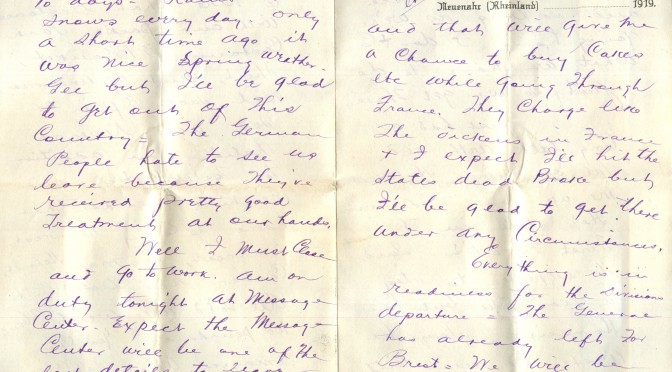 to days - Rains
snows every day. only
a short time ago it
was nice Spring weather.
Gee but I'll be glad
to get out of This
Country = The German
People hate to see us
leave because They've
received pretty good
Treatment at our hands.
Well I must Close
and go to work. am on
duty tonight at Message
Center. Expect the Message
Center will be one of The
last details to leave
Neuenahr (Rheinland) 1919.
and that will give me
a chance to buy Cakes
etc while going Through
France. They Charge like
The dickens in France
+ I expect I'll hit the
States dead Broke but
I'll be glad to get there
under any Circumstances.
Everything is in
readiness for the Divisions
departure = The General
has already left for
Brest = We will be